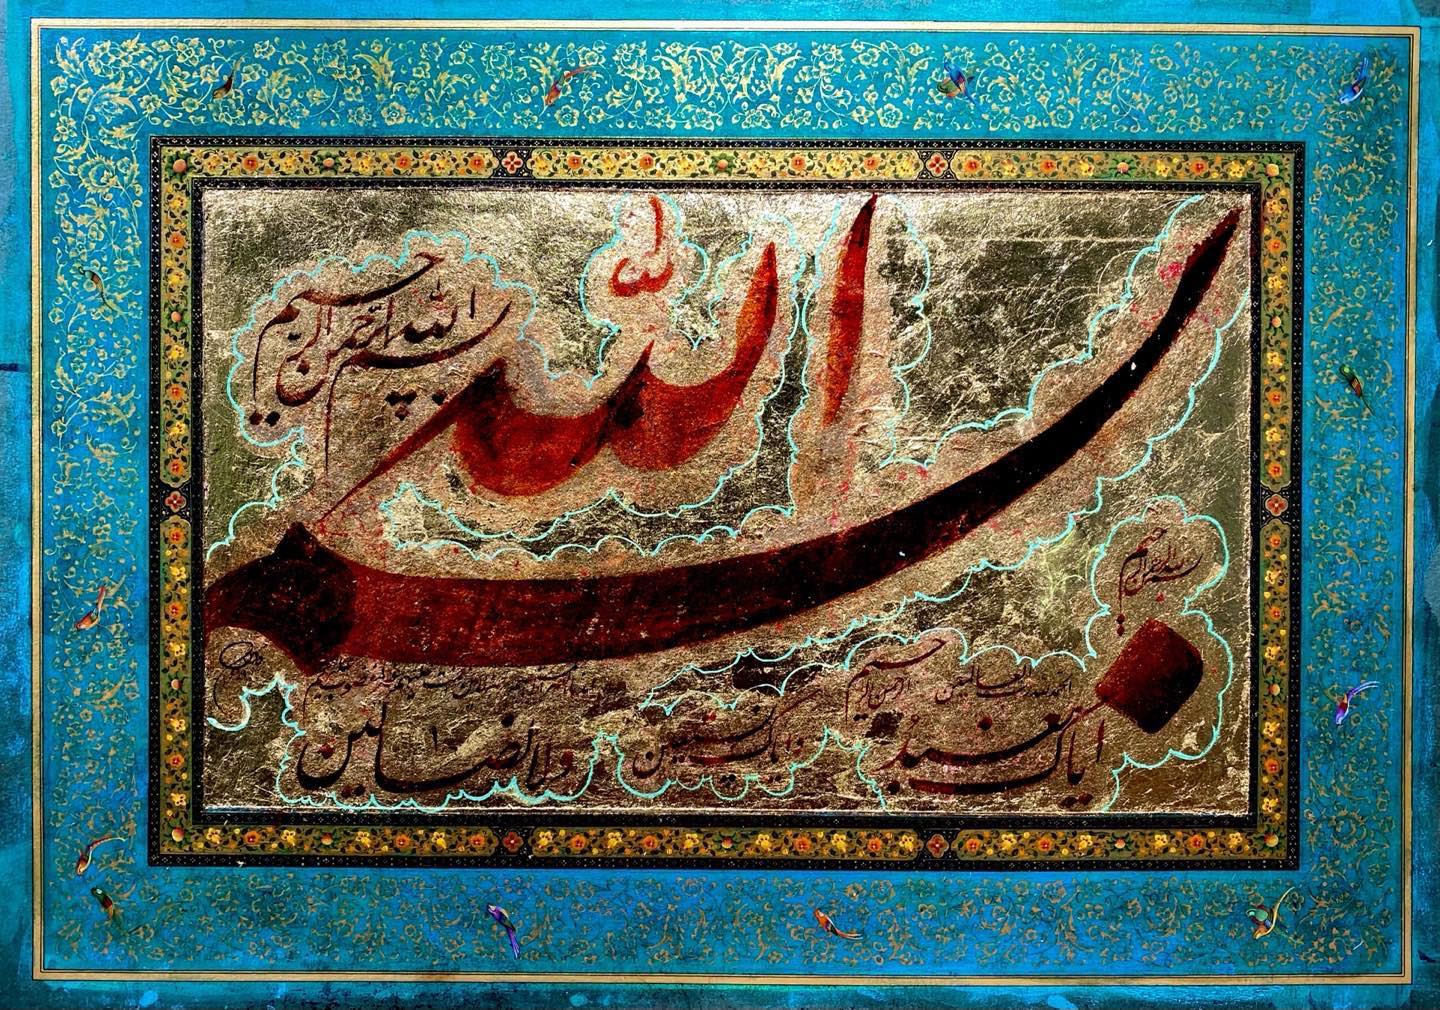 بسم الله
بسم الله الرحمن الرحيم
بسم الله الرحمن الرحيم
الحمدلله رب العالمين
الرحمن الرحيم
اياك نعبد
و اياك نستعين
ولا الضالين